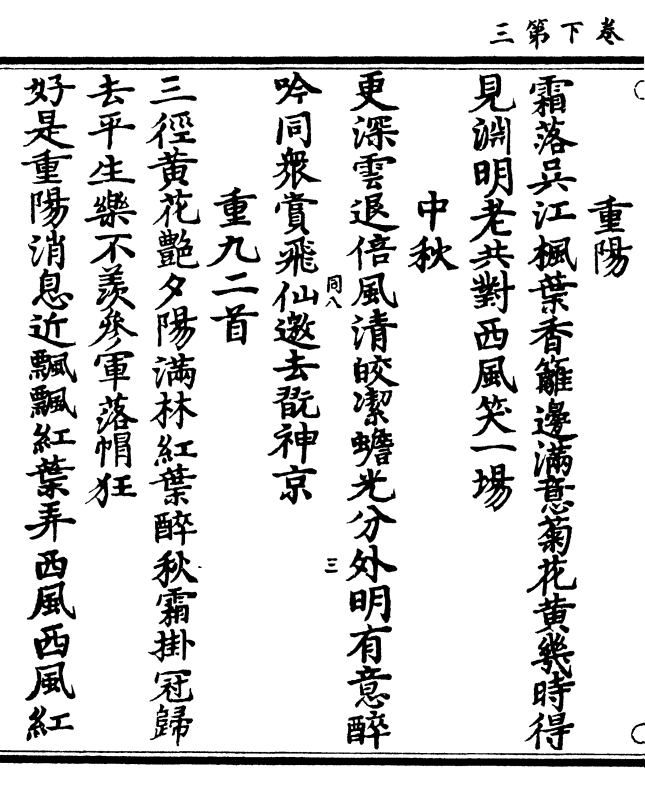 卷下第三
重陽
霜落吳江楓葉香籬邊滿意菊花黃幾時得
見淵明老共對西風笑一場
中秋
更深雲退倍風清皎潔蟾光分外明有意醉
吟同衆賞飛仙邀去翫神京
同八
三
重九二首
三徑黃花艷夕陽滿林紅葉醉秋霜掛冠歸
去平生樂不羨參軍落帽狂
好是重陽消息近飄飄紅葉弄西風西風紅